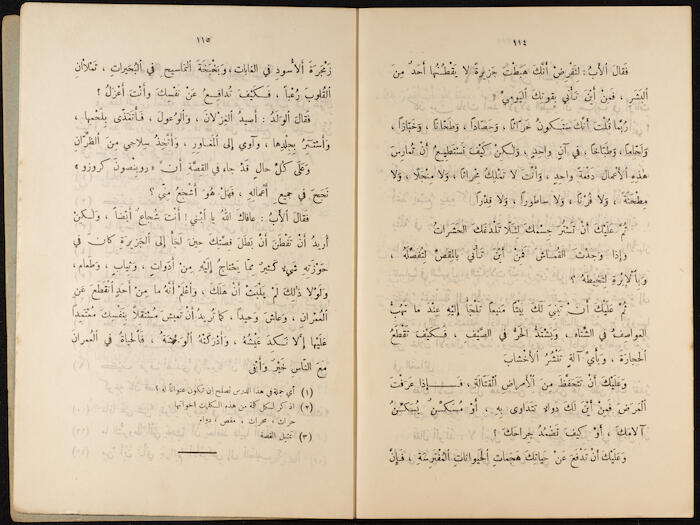 ١١٤
فَقَالَ الأَبُ : لِنَفْرِضْ أَنَّكَ هَبَطْتَ جَزِيرَةً لا يَقْطُنُهَا أَحَدٌ مِنَ
البَشَرِ ، فَمِنْ أَيْنَ تَأْتي بِقُوتِكَ اليَوْمِيِّ ؟
رُبَّمَا قُلْتَ أَنَّكَ سَتَكُونُ حَرَّاثًا ، وَحَصَّادًا ، وَطَحَّانًا ، وَخَبَّازًا ،
وَلَحَّامًا ، وَطَبَّاخًا ، في آنٍ واحِدٍ ، وَلكِنْ كَيْفَ تَسْتَطيعُ أَنْ تُمَارِسَ
هذِهِ الأَعْمَالَ دَفْعَةً واحِدٍ ، وَأَنْتَ لا تَمْلِكُ مِحْرَاثًا ، وَلا مِنْجَلًا ، وَلا
مِطْحَنَةً ، وَلا فُرْنًا ، وَلا سَاطورًا ، وَلا قِدْرًا
ثُمَّ عَلَيْكَ أَنْ تَسْتُرَ جِسْمَكَ لِئَلَّا تَلْدَغَكَ الحَشَرَاتُ
وَإِذا وَجَدْتَ القُمَاشَ فَمِنْ أَيْنَ تَأْتي بِالمِقَصِّ لِتُفَصِّلَهُ ،
وَبِالإِبْرَةِ لِتَخِيطَهُ ؟
ثُمَّ عَلَيْكَ أَنْ تَبْنِيَ لَكَ بَيْتًا مَنيعًا تَلْجَأُ إِلَيْهِ عِنْدَ ما تَهُبُّ
العَواصِفُ في الشِّتاءِ ، وَيَشْتَدُّ الحَرُّ في الصَّيْفِ ، فَكَيْفَ تَقْطَعُ
الحِجَارَةَ ، وَبِأَيِّ آلَةٍ تَنْشُرُ الأَخْشَابَ
وَعَلَيْكَ أَنْ تَتَحَفَّظَ مِنَ الأَمْراضِ القَتَّالَةِ ، فَـإِذا عَرَفْتَ
المَرَضَ فَمِنْ أَيْنَ لَكَ دَواءٌ تَتَداوى بِهِ ، أَوْ مُسَكِّنٌ يُسَكِّنُ
آلامَكَ ، أَوْ كَيْفَ تُضَمِّدُ جِراحَكَ ؟
وَعَلَيْكَ أَنْ تَدْفَعَ عَنْ حَيَاتِكَ هَجَمَاتِ الحَيَوَانَاتِ المُفْتَرِسَةِ ، فَإِنَّ
١١٥
زَمْجَرَةَ الأُسودِ في الغَابَاتِ ، وَبَخْبَخَةَ التَّمَاسِيحِ في البُحَيْرَاتِ ، تَمْلَآنِ
القُلُوبَ رُعْبًا ، فَكَيْفَ تُدافِعُ عَنْ نَفْسِكَ وَأَنْتَ أَعْزَلُ ؟
فَقَالَ الوَلَدُ : أَصِيدُ الغِزْلَانَ ، وَالوُعُولَ ، فَأَتَغَذَّى بِلَحْمِهَا ،
وَأَسْتَتِرُ بِجِلْدِها ، وَآوي إِلى المَغَاوِرِ ، وَأَتَّخِذُ سِلاحي مِنَ الظُّرَّانِ
وَعَلَى كُلِّ حالٍ قَدْ جاءَ في القِصَّةِ أَنَّ « روبِنْصونَ كروزو »
نَجَحَ في جَميعِ أَعْمَالِهِ ، فَهَلْ هُوَ أَشْجَعُ مِنِّي ؟
فَقَالَ الأَبُ : عافَاكَ اللهُ يا ابْني ! أَنْتَ شُجَاعٌ أَيْضًا ، وَلكِنْ
أُرِيدُ أَنْ تَفْطَنَ أَنَّ بَطَلَ قِصَّتِكَ حينَ لَجَأَ إِلى الجَزيرَةِ كانَ في
حَوْزَتِهِ شَيْءٌ كَثيرٌ مِمَّا يَحْتَاجُ إِلَيْهِ مِنْ أَدَوَاتٍ ، وَثِيَابٍ ، وَطَعَامٍ ،
وَلَوْلا ذلِكَ لَمْ يَلْبَثْ أَنْ هَلَكَ ، وَاعْلَمْ أَنَّهُ ما مِنْ أَحَدٍ انْقَطَعَ عَنِ
العُمْرانِ ، وَعاشَ وَحيدًا ، كَما تُريدُ أَنْ تَعيشَ مُسْتَقِلًّا بِنَفْسِكَ مُعْتَمِدًا
عَلَيْها إِلَّا نَكِدَ عَيْشُهُ ، وَأَدْرَكَتْهُ الوَحْشَةُ ، فَالحَيَاةُ في العُمرانِ
مَعَ النَّاسِ خَيْرٌ وَأَبْقَى
(١) أي جملة في هذا الدرس تصلح ان تكون عنوانًا له ؟
(٢) اذكر لكل كلمة من هذه الكلمات اخواتها :
حراث ، محراث ، مقص ، دواء .
(٣) تمثيل القصة